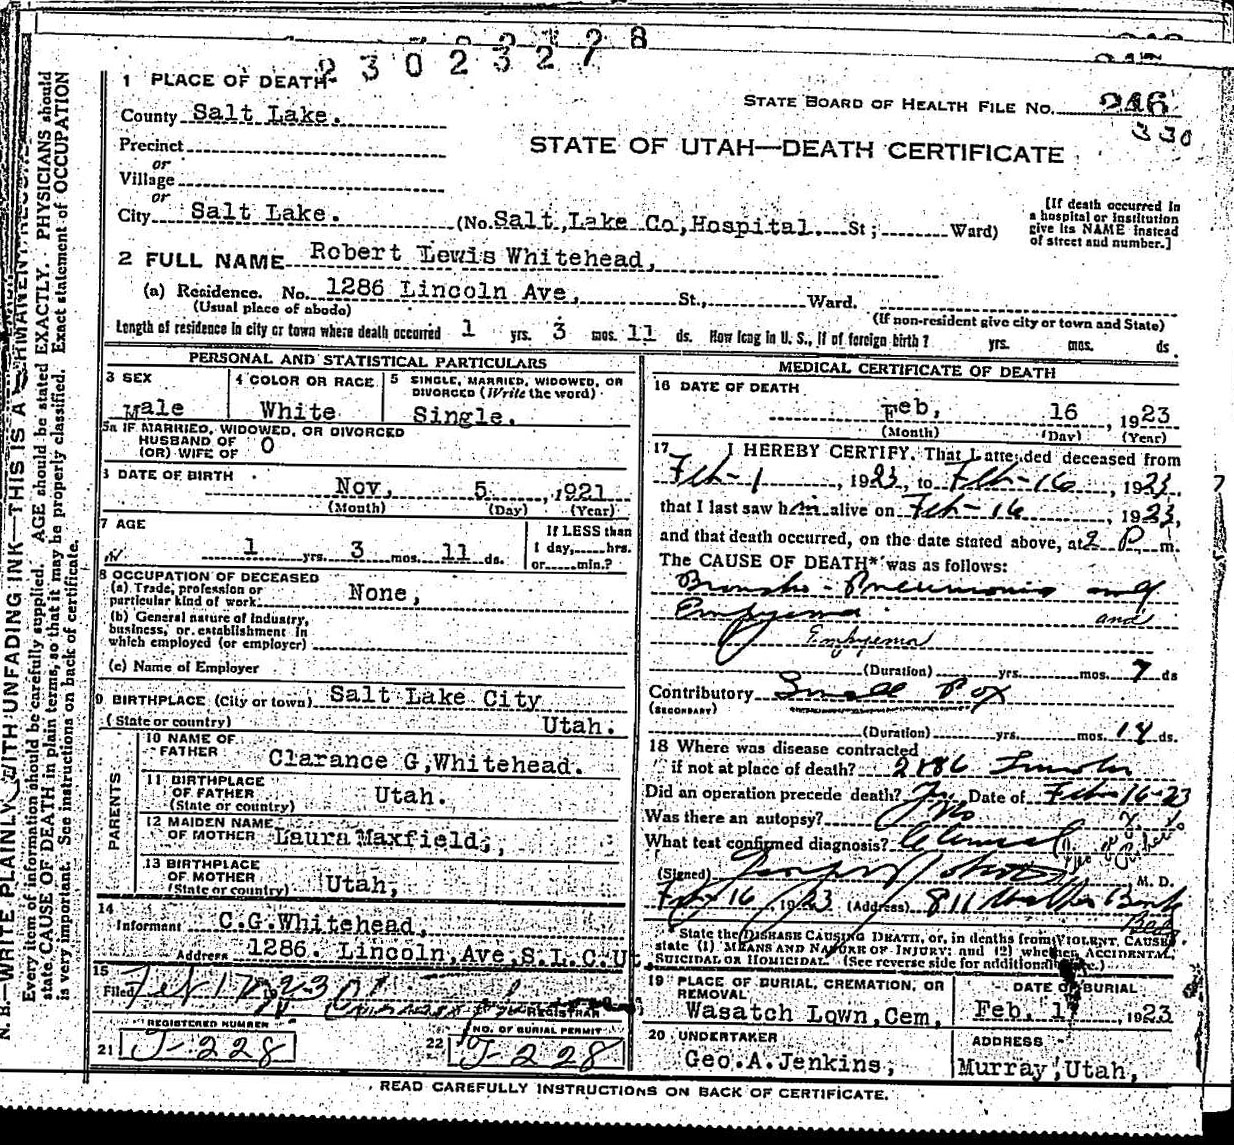 2302327 8
1 PLACE OF DEATH
STATE BOARD OF HEALTH FILE NO. 246
330
County Salt Lake.
STATE OF UTAH—DEATH CERTIFICATE
Precinct
or
Village
or
City Salt Lake. (No. Salt, Lake Co, Hospital. St; Ward)
[If death occurred in
a hospital or institution
give its NAME instead
of street and number.]
2 FULL NAME Robert Lewis Whitehead,
(a) Residence. No. 1286 Lincoln Ave, St., Ward.
(Usual place of abode) (If non-resident give city or town and State)
Length of residence in city or town where death occurred 1 yrs. 3 mos. 11 ds. How long in U. S., if of foreign birth? yrs. mos. ds.
PERSONAL AND STATISTICAL PARTICULARS
3 SEX
Male
4 COLOR OR RACE
White
5 SINGLE, MARRIED, WIDOWED, OR
DIVORCED (Write the word)
Single.
5a IF MARRIED, WIDOWED, OR DIVORCED
HUSBAND OF
(OR) WIFE OF 0
6 DATE OF BIRTH
Nov, 5, 1921
(Month) (Day) (Year)
7 AGE
1 yrs. 3 mos. 11 ds.
If LESS than
1 day, hrs.
or min.?
8 OCCUPATION OF DECEASED
(a) Trade, profession or
particular kind of work. None,
(b) General nature of industry,
business, or establishment in
which employed (or employer)
(c) Name of Employer
9 BIRTHPLACE (City or town) Salt Lake City
(State or country) Utah.
PARENTS
10 NAME OF
FATHER Clarance G, Whitehead.
11 BIRTHPLACE
OF FATHER
(State or country) Utah.
12 MAIDEN NAME
OF MOTHER Laura Maxfield,
13 BIRTHPLACE
OF MOTHER
(State or country) Utah,
14
Informant C.G. Whitehead,
Address 1286. Lincoln, Ave, S.L.C. Ut
15
Filed Feb 17 23
REGISTRAR
REGISTERED NUMBER
21 J-228
NO. OF BURIAL PERMIT
22 J-228
MEDICAL CERTIFICATE OF DEATH
16 DATE OF DEATH
Feb, 16, 1923
(Month) (Day) (Year)
17 I HEREBY CERTIFY. That I attended deceased from
Feb-1, 1923, to Feb-16, 1923,
that I last saw him alive on Feb-16, 1923,
and that death occurred, on the date stated above, at 2 P m.
The CAUSE OF DEATH* was as follows:
Broncho-Pneumonia and
Empyema and
Empyema
(Duration) yrs. mos. 7 ds
Contributory Small Pox
(SECONDARY)
(Duration) yrs. mos. 14 ds.
18 Where was disease contracted
if not at place of death? 2186 Lincoln
Did an operation precede death? Date of Feb-16-23
Was there an autopsy? No
What test confirmed diagnosis? Clinical
(Signed) M. D.
Feb 16, 1923 (Address) 811 Walker Bank
Bldg
State the DISEASE CAUSING DEATH, or, in deaths from VIOLENT, CAUSE
state (1) MEANS AND NATURE OF INJURY: and (2) whether ACCIDENTAL,
SUICIDAL OR HOMICIDAL. (See reverse side for additional
19 PLACE OF BURIAL, CREMATION, OR
REMOVAL
Wasatch Lown, Cem,
DATE OF BURIAL
Feb, 1923
20 UNDERTAKER
Geo. A. Jenkins,
ADDRESS
Murray, Utah,
READ CAREFULLY INSTRUCTIONS ON BACK OF CERTIFICATE.
N. B.—WRITE PLAINLY, WITH UNFADING INK—THIS IS A PERMANENT RECORD
Every item of information should be carefully supplied. AGE should be stated EXACTLY. PHYSICIANS should
state CAUSE OF DEATH in plain terms, so that it may be properly classified. Exact statement of OCCUPATION
is very important. See instructions on back of certificate.